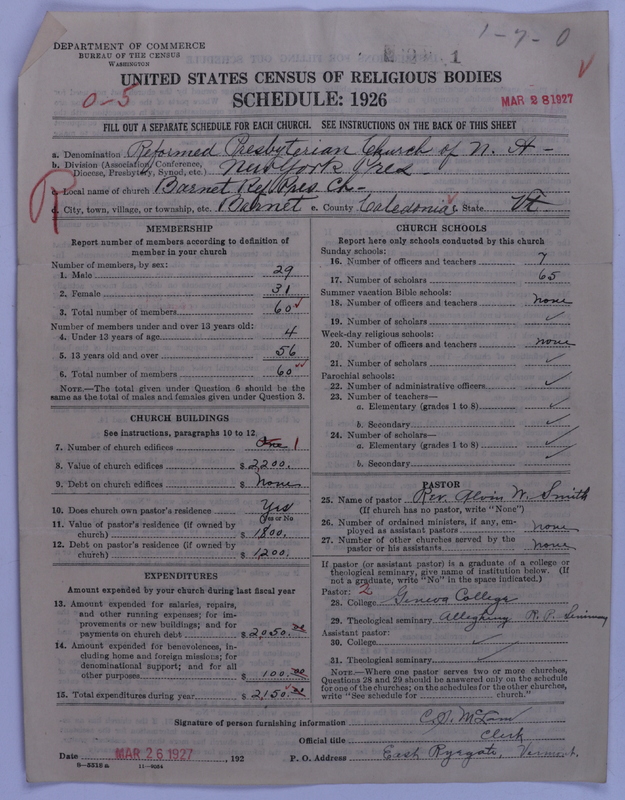 1-7-0
DEPARTMENT OF COMMERCE
BUREAU OF THE CENSUS
WASHINGTON
1
UNITED STATES CENSUS OF RELIGIOUS BODIES
0-5
SCHEDULE: 1926
MAR 28 1927
FILL OUT A SEPARATE SCHEDULE FOR EACH CHURCH. SEE INSTRUCTIONS ON THE BACK OF THIS SHEET
a. Denomination Reformed Presbyterian Church of N. A-
b. Division (Association, Conference, Diocese, Presbytery, Synod, etc.) New York Pres-
c. Local name of church Barnet Ref Pres. Ch-
R
d. City, town, village, or township, etc. Barnet e. County Caledonia f. State Vt
MEMBERSHIP
Report number of members according to definition of
member in your church
Number of members, by sex:
1. Male 29
2. Female 31
3. Total number of members 60
Number of members under and over 13 years old:
4. Under 13 years of age 4
5. 13 years old and over 56
6. Total number of members 60
NOTE.—The total given under Question 6 should be the
same as the total of males and females given under Question 3.
CHURCH BUILDINGS
See instructions, paragraphs 10 to 12.
7. Number of church edifices One 1
8. Value of church edifices $ 2200.
9. Debt on church edifices $ None
10. Does church own pastor's residence Yes
(Yes or No
11. Value of pastor's residence (if owned by
church) $ 1800.
12. Debt on pastor's residence (if owned by
church) $ 1200.
EXPENDITURES
Amount expended by your church during last fiscal year
13. Amount expended for salaries, repairs,
and other running expenses; for im-
provements or new buildings; and for
payments on church debt $ 2050.00
14. Amount expended for benevolences, in-
cluding home and foreign missions; for
denominational support; and for all
other purposes $ 100.00
15. Total expenditures during year $ 2150.00
CHURCH SCHOOLS
Report here only schools conducted by this church
Sunday schools:
16. Number of officers and teachers 7
17. Number of scholars 65
Summer vacation Bible schools:
18. Number of officers and teachers none
19. Number of scholars
Week-day religious schools:
20. Number of officers and teachers none
21. Number of scholars
Parochial schools:
22. Number of administrative officers
23. Number of teachers—
a. Elementary (grades 1 to 8)
b. Secondary
24. Number of scholars—
a. Elementary (grades 1 to 8)
b. Secondary
PASTOR
25. Name of pastor Rev. Alvin W. Smith
(If church has no pastor, write "None")
26. Number of ordained ministers, if any, em-
ployed as assistant pastors none
27. Number of other churches served by the
pastor or his assistants none
If pastor (or assistant pastor) is a graduate of a college or
theological seminary, give name of institution below. (If
not a graduate, write "No" in the space indicated.)
Pastor: 2
28. College Geneva College
29. Theological seminary Allegheny R. P. Seminary
Assistant pastor:
30. College
31. Theological seminary
NOTE.—Where one pastor serves two or more churches,
Questions 28 and 29 should be answered only on the schedule
for one of the churches; on the schedules for the other churches,
write "See schedule for church."
Signature of person furnishing information McLam
Official title Clerk
Date MAR 26 1927, 192 P. O. Address East Ryegate, Vermont.
8-5318a 11-9034